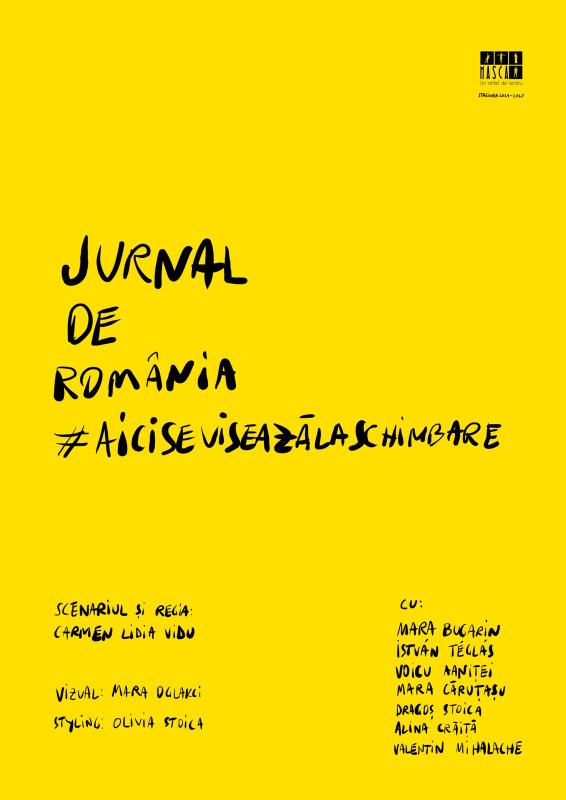 MASCA
Un altfel de teatru
STAGIUNEA 2024-2025
JURNAL
DE
ROMÂNIA
#AICISEVISEAZĂLASCHIMBARE
SCENARIUL ȘI REGIA:
CARMEN LIDIA VIDU
VIZUAL: MARA OGLAKCI
STYLING: OLIVIA STOICA
CU:
MARA BUCARIN
ISTVÁN TÉGLÁS
VOICU AANIȚEI
MARA CĂRUȚAȘU
DRAGOȘ STOICA
ALINA CRĂIȚĂ
VALENTIN MIHALACHE